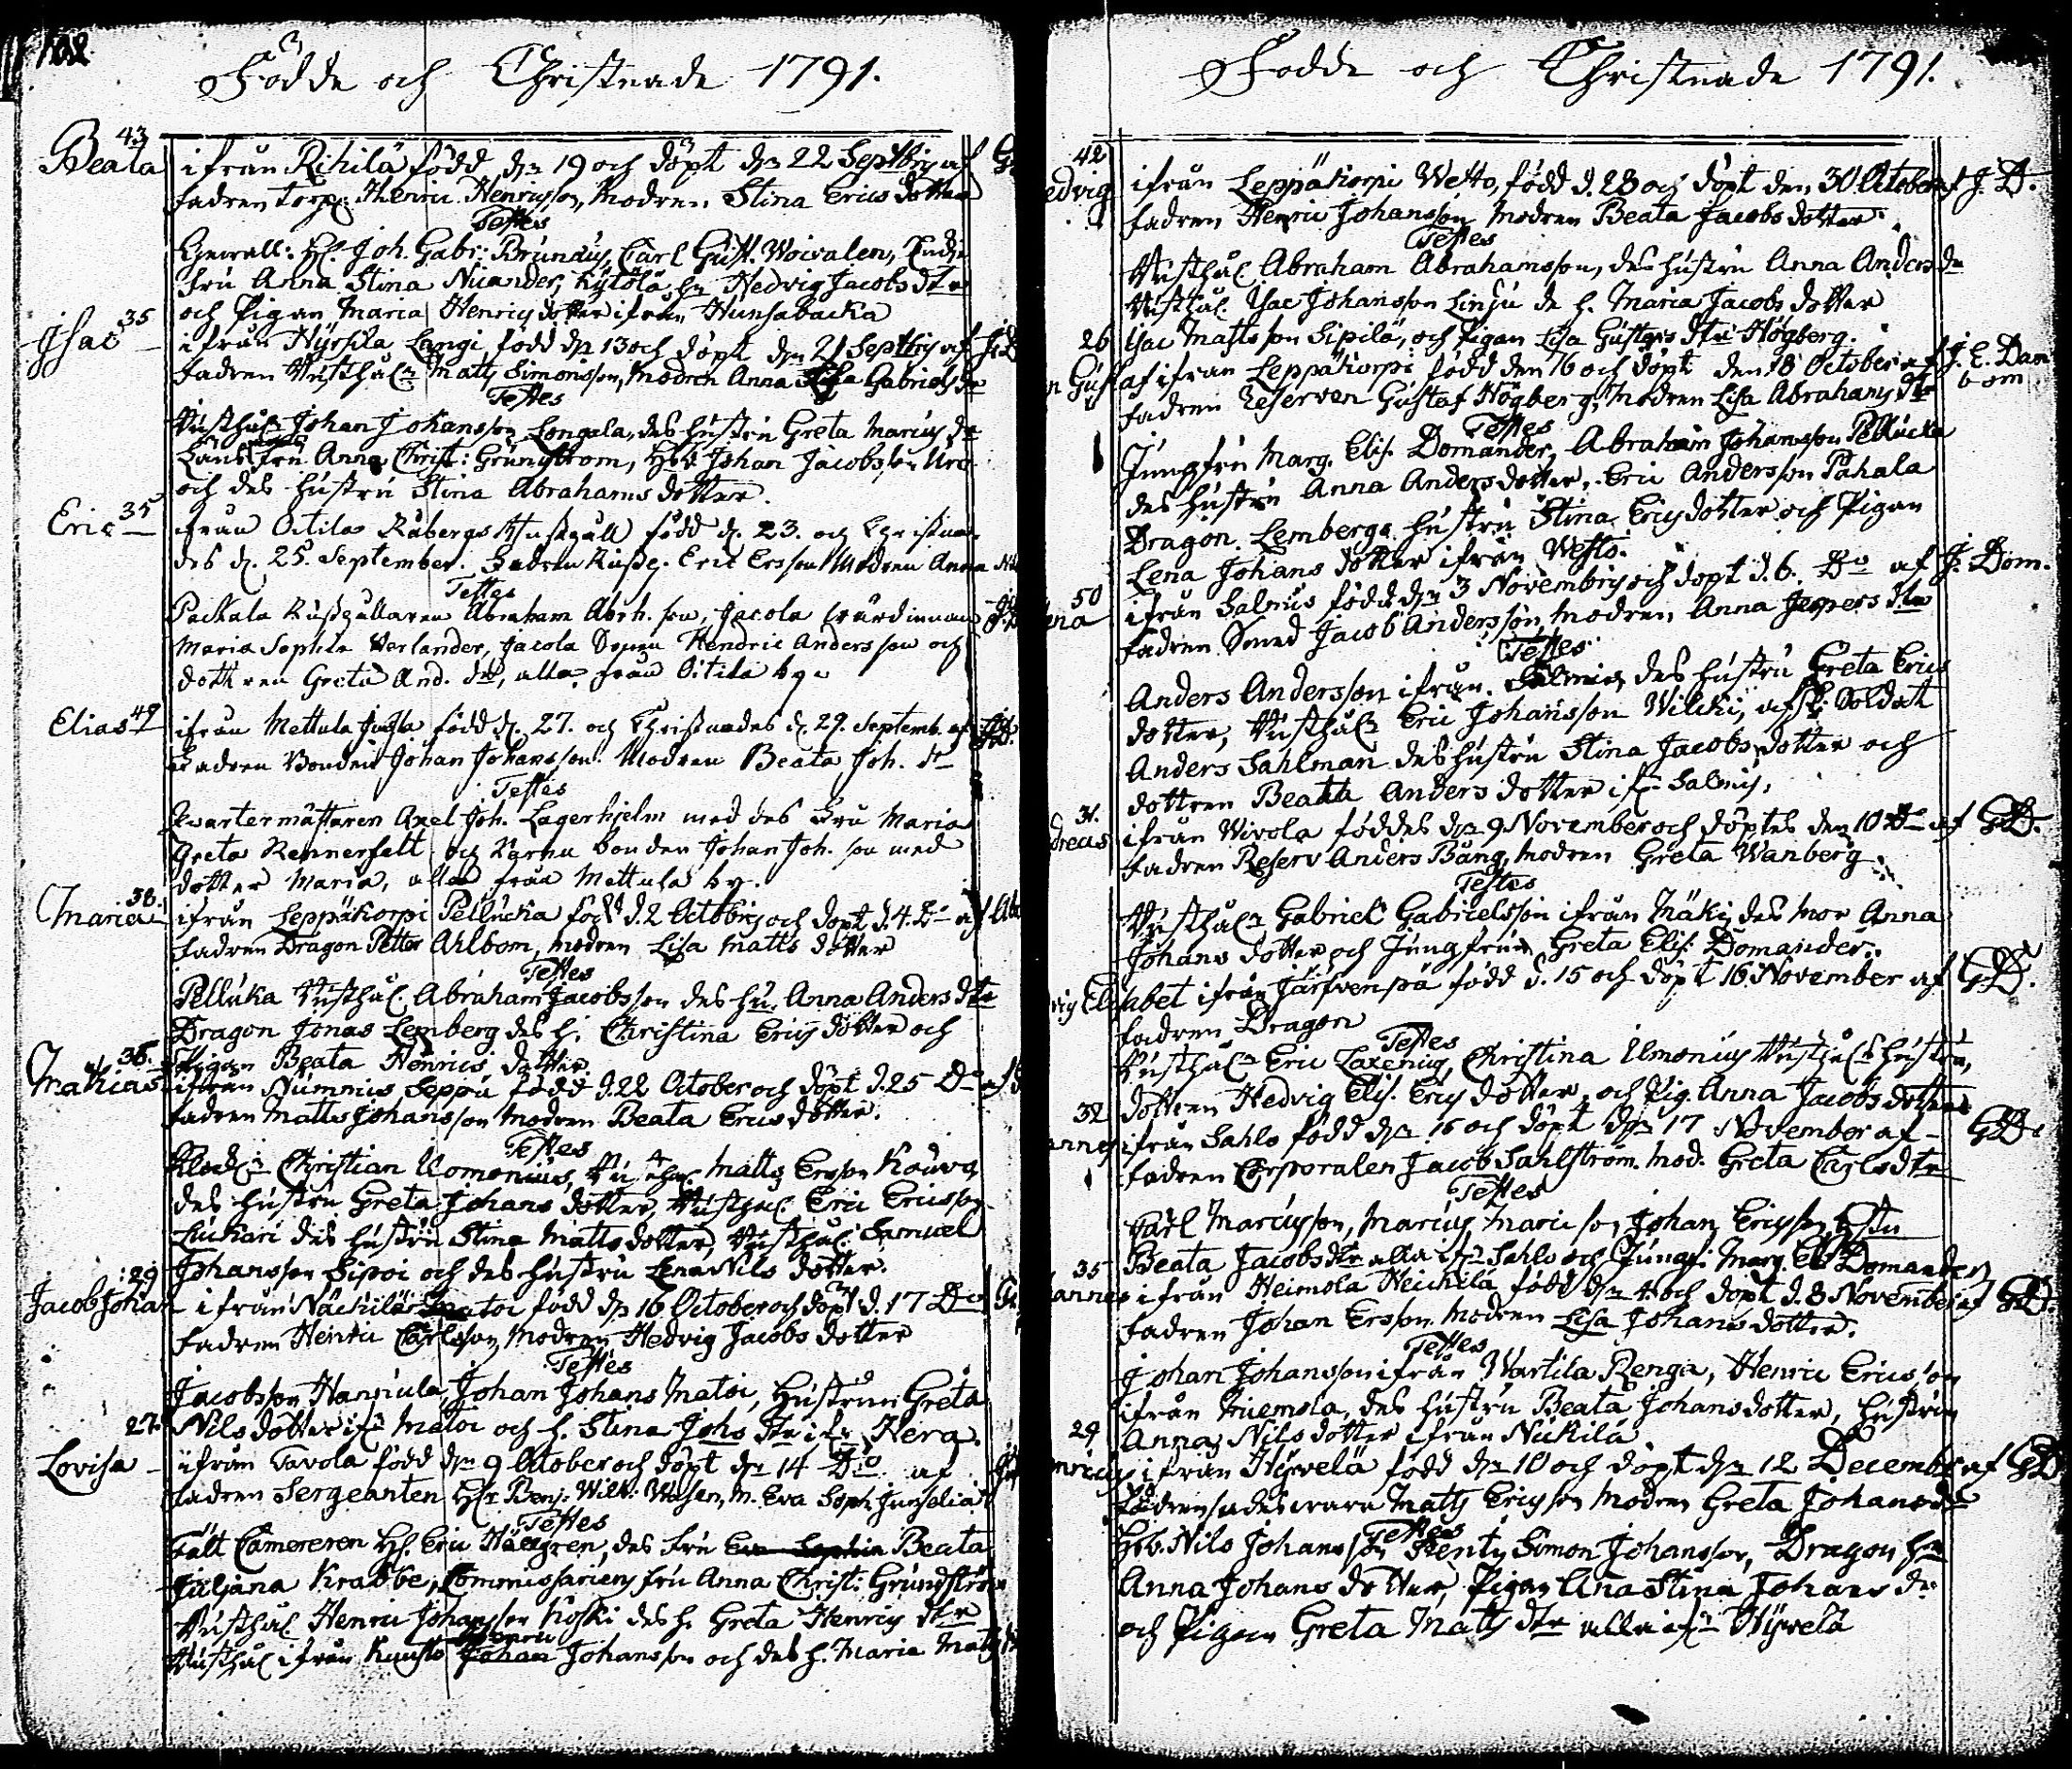 102
Födde och Christnade 1791.
43
Beata ifrån Rihilä född dn 19 och döpt dn 22 Septbris af
fadren torp: Henric Henricsson, Modren Stina Erics dotter
Testes
Hr Joh. Gabr: Brunaus, Carl Gust. Woivalen,
fru Anna Stina Nicander, Kytölä hn Hedvig Jacobs dtr
och Pigan Maria Henrics dotter ifrån Hunsabacka
35
Isac ifrån Hyrsilä Langi född dn 13 och döpt dn 21 Septbris af
fadren Rusthåln Matts Simonsson, Modren Anna Lisa Gabriels dr
Testes
Rusthåln Johan Johansson Longala, des hustru Greta Marcus dr
Läns fru Anna Christ: Grundström, Johan Jacobsson
och des hustru Stina Abrahams dotter.
35
Eric ifrån Oitila Råbergs född d. 23. och Christna-
des d. 25. September. Fadren Eric Ersson Modren Anna
Testes
Packala Abraham Abrh. son, Jacola wärdinnan
Maria Sophia Verlander, Jacola Sonen Hendric Andersson och
dottren Greta And. dtr, alla från Oitila by.
49
Elias ifrån Mettula född d. 27. och Christnades d. 29. Septemb. af
Fadren Bonden Johan Johansson. Modren Beata Joh. dr
Testes
Qvartermästaren Axel Joh. Lagerhjelm med des Fru Maria
Greta Rennerfelt och Bonden Johan Joh. son med
dotter Maria, alla från Mettula by.
38.
Maria ifrån Leppäkorpi Pellucka född d. 2 Octobris och döpt d. 4. Do af
fadren Dragon Petter Ahlbom, modren Lisa Matts dotter
Testes
Pelluka Rusthål. Abraham Jacobsson des hu. Anna Anders dtr
Dragon Jonas Lemberg des h. Christina Erics dotter och
Pigan Beata Henrics dotter.
36.
Mathias ifrån Nummis Seppä född d. 22 October och döpt d. 25 Do af
fadren Matts Johansson modren Beata Erics dotter.
Testes
Christian Ilmonius, Rusthål. Matts Ersson Kouva
des hustru Greta Johans dotter, Rusthål. Eric Ericsson
Lukari des hustru Stina Matts dotter, Rusthål. Samuel
Johansson Sipoi och des hustru Lena Nils dotter.
29
Jacob Johan ifrån Näckilä Matoi född dn 16 October och döpt d. 17 Do
fadren Henric Carlsson, Modren Hedvig Jacobs dotter
Testes
Jacobsson Hannula, Johan Johans Matoi, Hustrun Greta
Nilsdotter ifr Matoi och h. Stina Johs dtr ifr Kera.
27.
Lovisa ifrån Tavola född dn 9 October och döpt dn 14 Do af
fadren Sergeanten Hr Benj. Wilh: Wasen, M. Eva Soph
Testes
Fält Camereren Hr Eric Hällgren, des fru Eva Sophia Beata
Juliana Krabbe, Commissariens fru Anna Christ: Grundström
Rusthål. Henric Johansson Koski des h. Greta Henrics dtr
Rusthål ifrån Henric Johan Johansson och des h. Maria Matts
Fodde och Christnade 1791.
42
edvig ifrån Leppäkorpi Westo, född d. 28 och döpt den 30 October af J. D.
fadren Henric Johansson Modren Beata Jacobs dotter.
Testes
Rusthål. Abraham Abrahamsson, des hustru Anna Anders dr
Rusthål. Isac Johansson Linju de h. Maria Jacobs dotter
Isac Mattsson Sipilä, och Pigan Lisa Gustavs dtr Högberg.
26
n Gustaf ifrån Leppäkorpi född den 16 och döpt den 18 October af J. E. Dam
bom
fadren Reserven Gustaf Högberg, Modren Lisa Abrahams dtr
Testes
Jungfru Marg. Elis. Domander, Abraham Johansson Pellucka
des hustru Anna Anders dotter, Eric Andersson Pahala
Dragon. Lembergs hustru Stina Ericsdotter och Pigan
Lena Johans dotter ifrån Westo.
50
ena ifrån Salmis född dn 3 Novembris och döpt d. 6. Do af J. Dom.
fadren Smed Jacob Andersson, modren Anna Jespers dtr
Testes
Anders Andersson ifrån Salmis, des hustru Greta Erics
dotter, Rusthåln Eric Johansson Wilcki, afsk: Soldat
Anders Sahlman des hustru Stina Jacobs dotter och
dottren Beata Anders dotter ifr Salmis.
31.
dreas ifrån Wivola föddes dn 9 November och döptes den 10 Do af GD.
fadren Reserv Anders Bång, modren Greta Wanberg.
Testes
Rusthåln Gabriel Gabrielsson ifrån Mäki, des mor Anna
Johans dotter och Jungfrun Greta Elis: Domander.
vig Elisabet ifrån Järfvenpä född d. 15 och döpt 16 November af GD.
fadren Dragon
Testes
Rusthåln Eric Laxenius, Christina Ilmonius Rusthåls hustru,
dottren Hedvig Elis. Erics dotter, och Pig. Anna Jacobs dotter
32
annes ifrån Sahlo född dn 16 och döpt dn 17 November af GD.
fadren Corporalen Jacob Sahlström. Mod. Greta Carlsdtr
Testes
Carl Marcusson, Marcus Maricson, Johan Ericsson hstu
Beata Jacobsdtr alla ifr Sahlo och Jungf: Marg. Elis Domander
35
annes ifrån Heimola Heickilä född dn 4 och döpt d. 8 November af GD.
fadren Johan Ersson Modren Lisa Johans dotter.
Testes
Johan Johansson ifrån Wartila Renga, Henric Ericsson
ifrån des hustru Beata Johans dotter, hustrun
Anna Nils dotter ifrån Näckilä
29
nricus ifrån Hyvelä född dn 10 och döpt dn 12 December af GD
fadren Matts Ericsson Modren Greta Johans dr
Testes
Nils Johansson Simon Johansson, Dragon
Anna Johans dotter, Pigan Ana Stina Johans dr
och Pigan Greta Matts dtr alla ifr Hyvelä